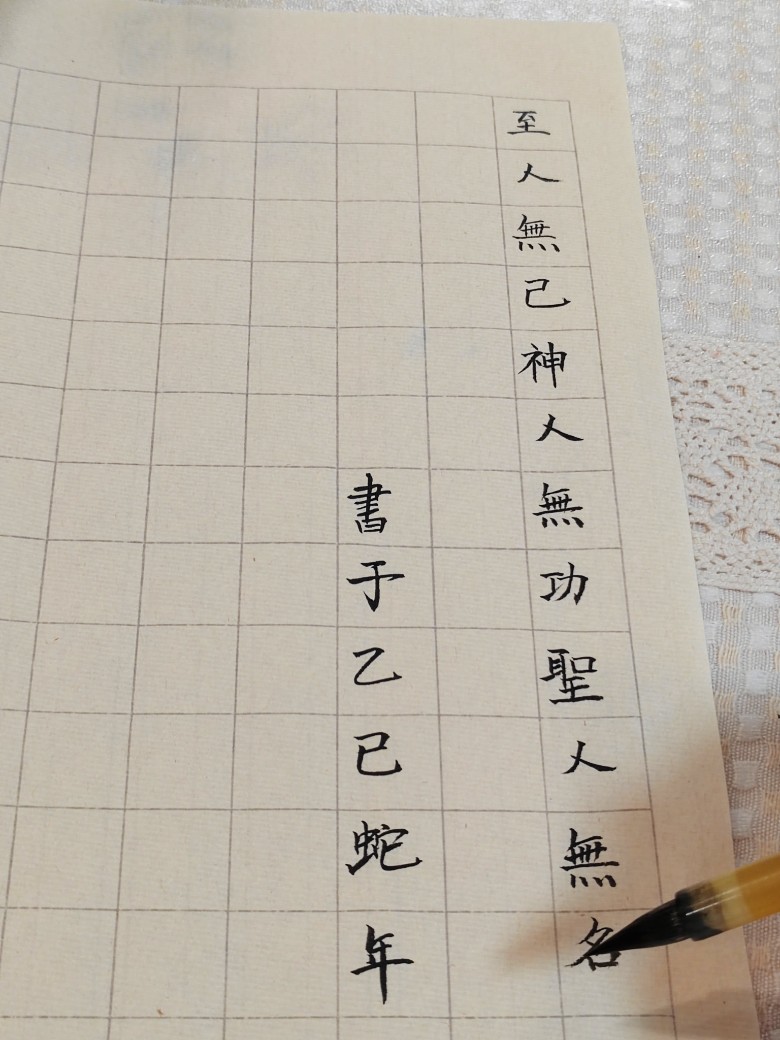 至人無己神人無功聖人無名
書于乙巳蛇年